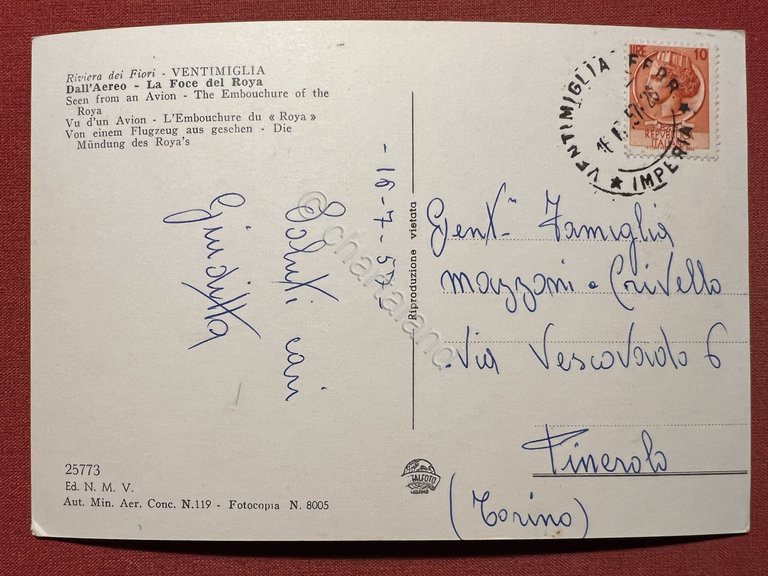 Riviera dei Fiori - VENTIMIGLIA
Dall'Aereo - La Foce del Roya
Seen from an Avion - The Embouchure of the
Roya
Vu d'un Avion - L'Embouchure du « Roya »
Von einem Flugzeug aus gesehen - Die
Mündung des Roya's
-16-7-57-
Saluti cari
Giuditta
25773
Ed. N. M. V.
Aut. Min. Aer. Conc. N.119 - Fotocopia N. 8005
Riproduzione vietata
ITALFOTO
LIRE 10
REPVBBLICA
ITALIANA
VENTIMIGLIA FERR.
★ IMPERIA ★
Gent. Famiglia
Mazzoni e Crivello
Via Vescovado 6
Pinerolo
(Torino)
© chartaland